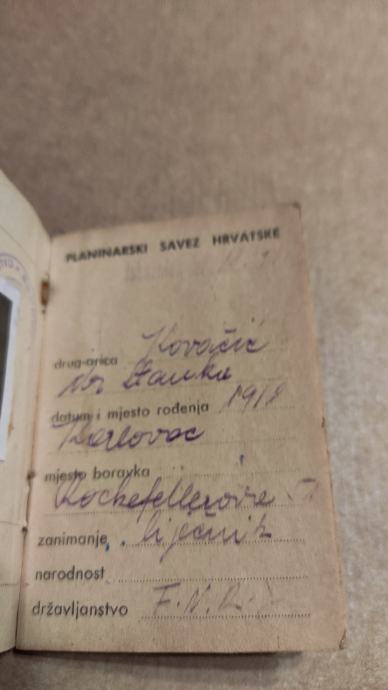 PLANINARSKI SAVEZ HRVATSKE
drug-arica Kovačić
Dr Stanka
datum i mjesto rođenja 1918
Karlovac
mjesto boravka
Rockefellerova
zanimanje liječnik
narodnost
državljanstvo F.N.R.J